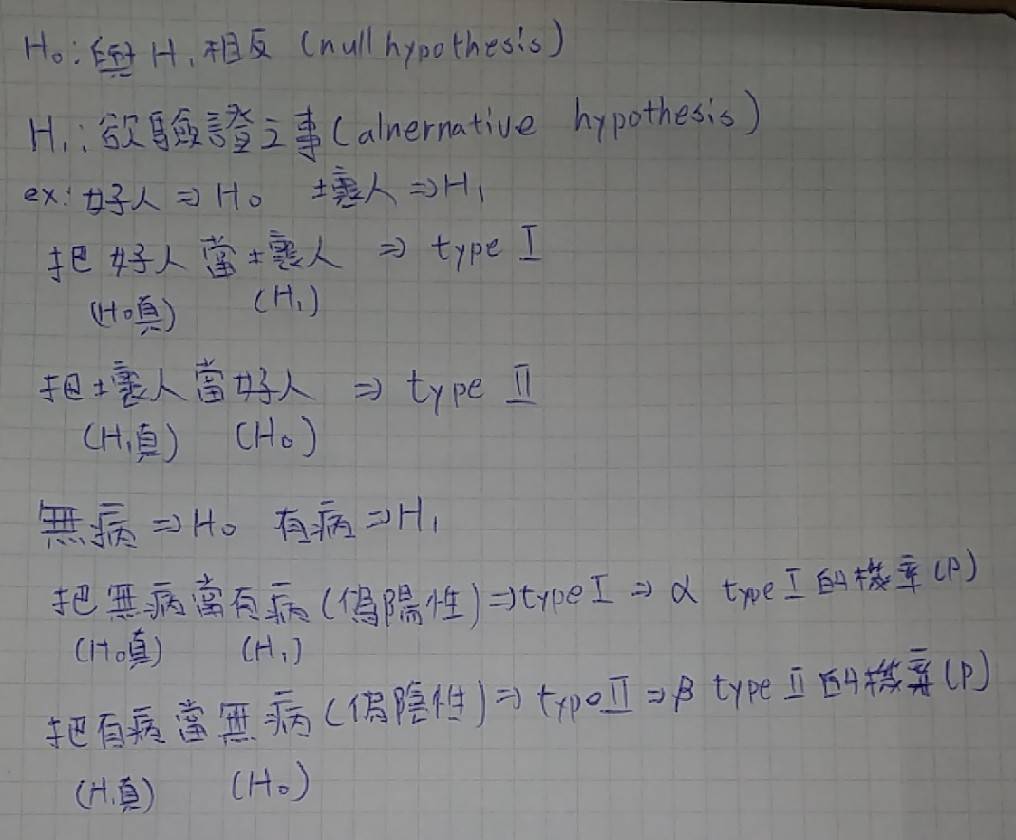 H₀:與H₁相反 (null hypothesis)
H₁:欲驗證之事(alnernative hypothesis)
ex:好人⇒H₀ 壞人⇒H₁
把好人當壞人 ⇒ type I
(H₀真) (H₁)
把壞人當好人 ⇒ type II
(H₁真) (H₀)
無病⇒H₀ 有病⇒H₁
把無病當有病(偽陽性)⇒type I ⇒ α type I 的機率(P)
(H₀真) (H₁)
把有病當無病(偽陰性)⇒ type II ⇒ β type II 的機率(P)
(H₁真) (H₀)